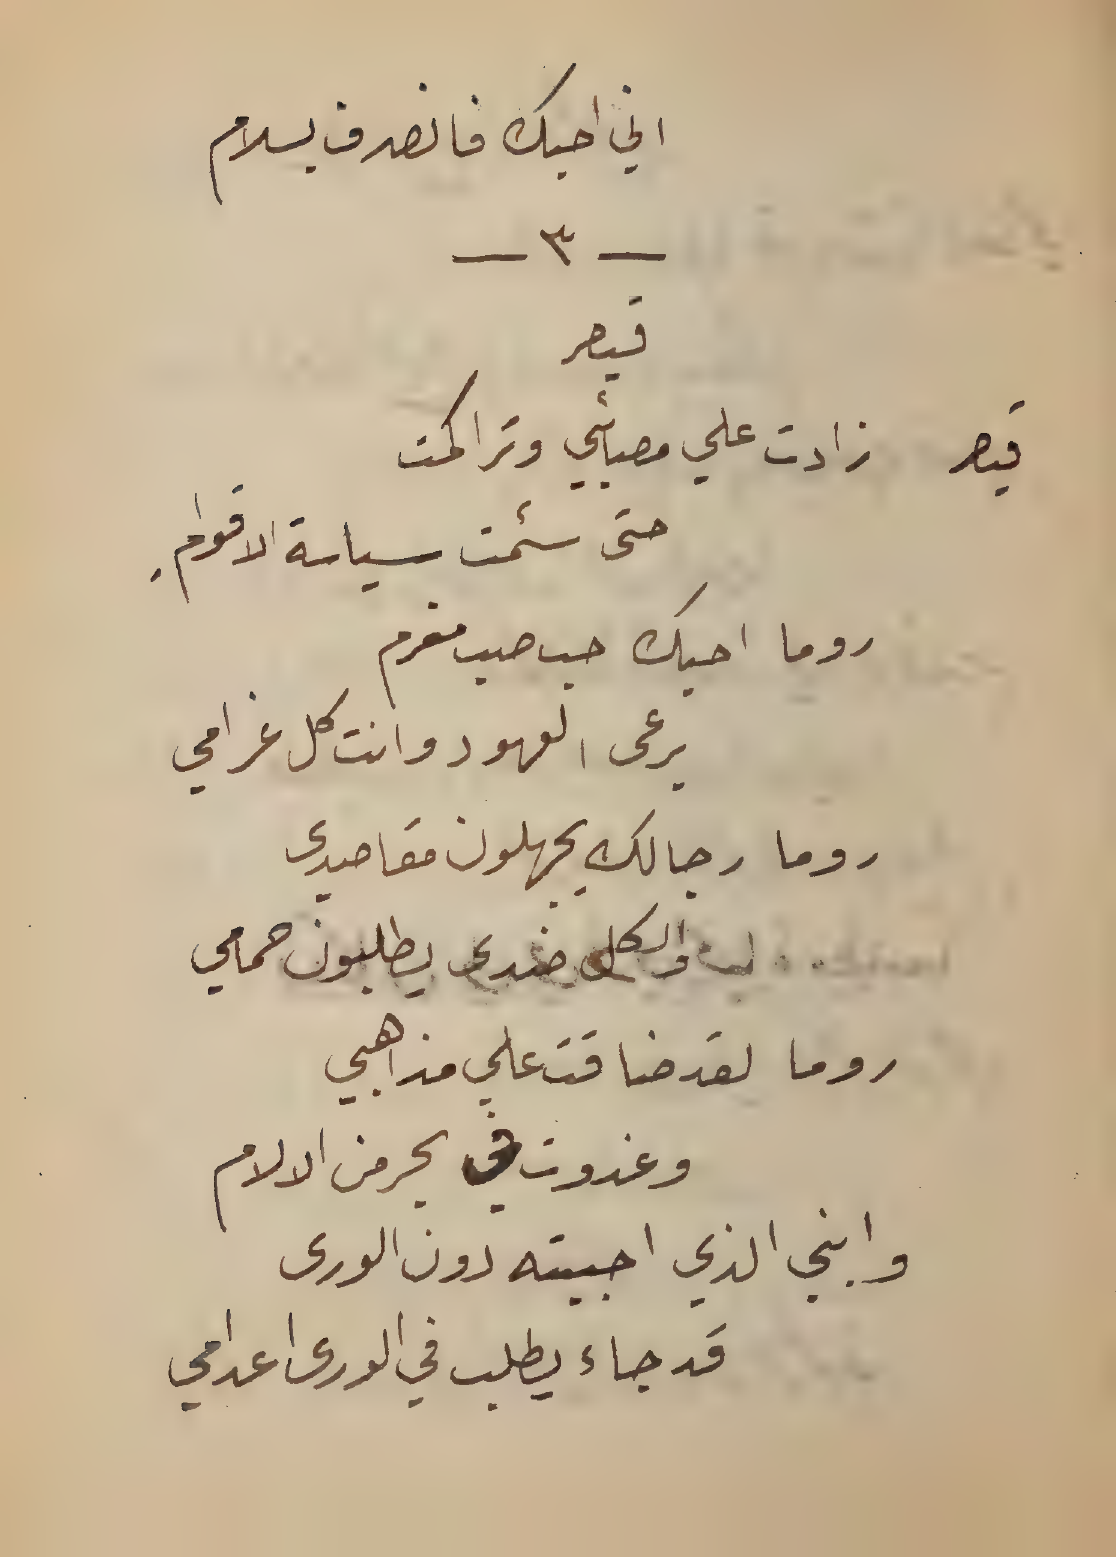 اني احبك فانصرف بسلام
— ٣ —
قيصر
قيصر زادت علي مصائبي وتراكمت
حتى سئمت سياسة الاقوام
روما احبك حب صب مغرم
يرعى العهود وانت كل غرامي
روما رجالك يجهلون مقاصدي
والكل ضدي يطلبون حمامي
روما لقد ضاقت علي مذاهبي
وغدوت في بحر من الالام
وابني الذي احببته دون الورى
قد جاء يطلب في الورى اعدامي